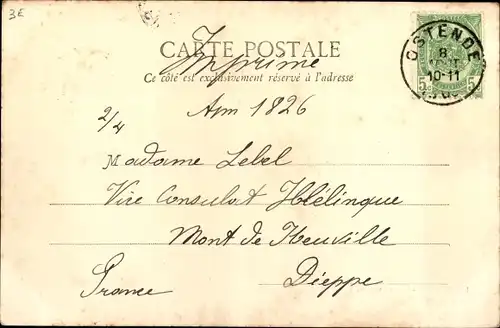 3E
CARTE POSTALE
Imprimé
Ce côté est exclusivement réservé à l'adresse
OSTENDE
8
10-11
5c 5c
2/4
Apm 1826
Madame Lebel
Vice Consulat
Mont de Neuville
Dieppe
France